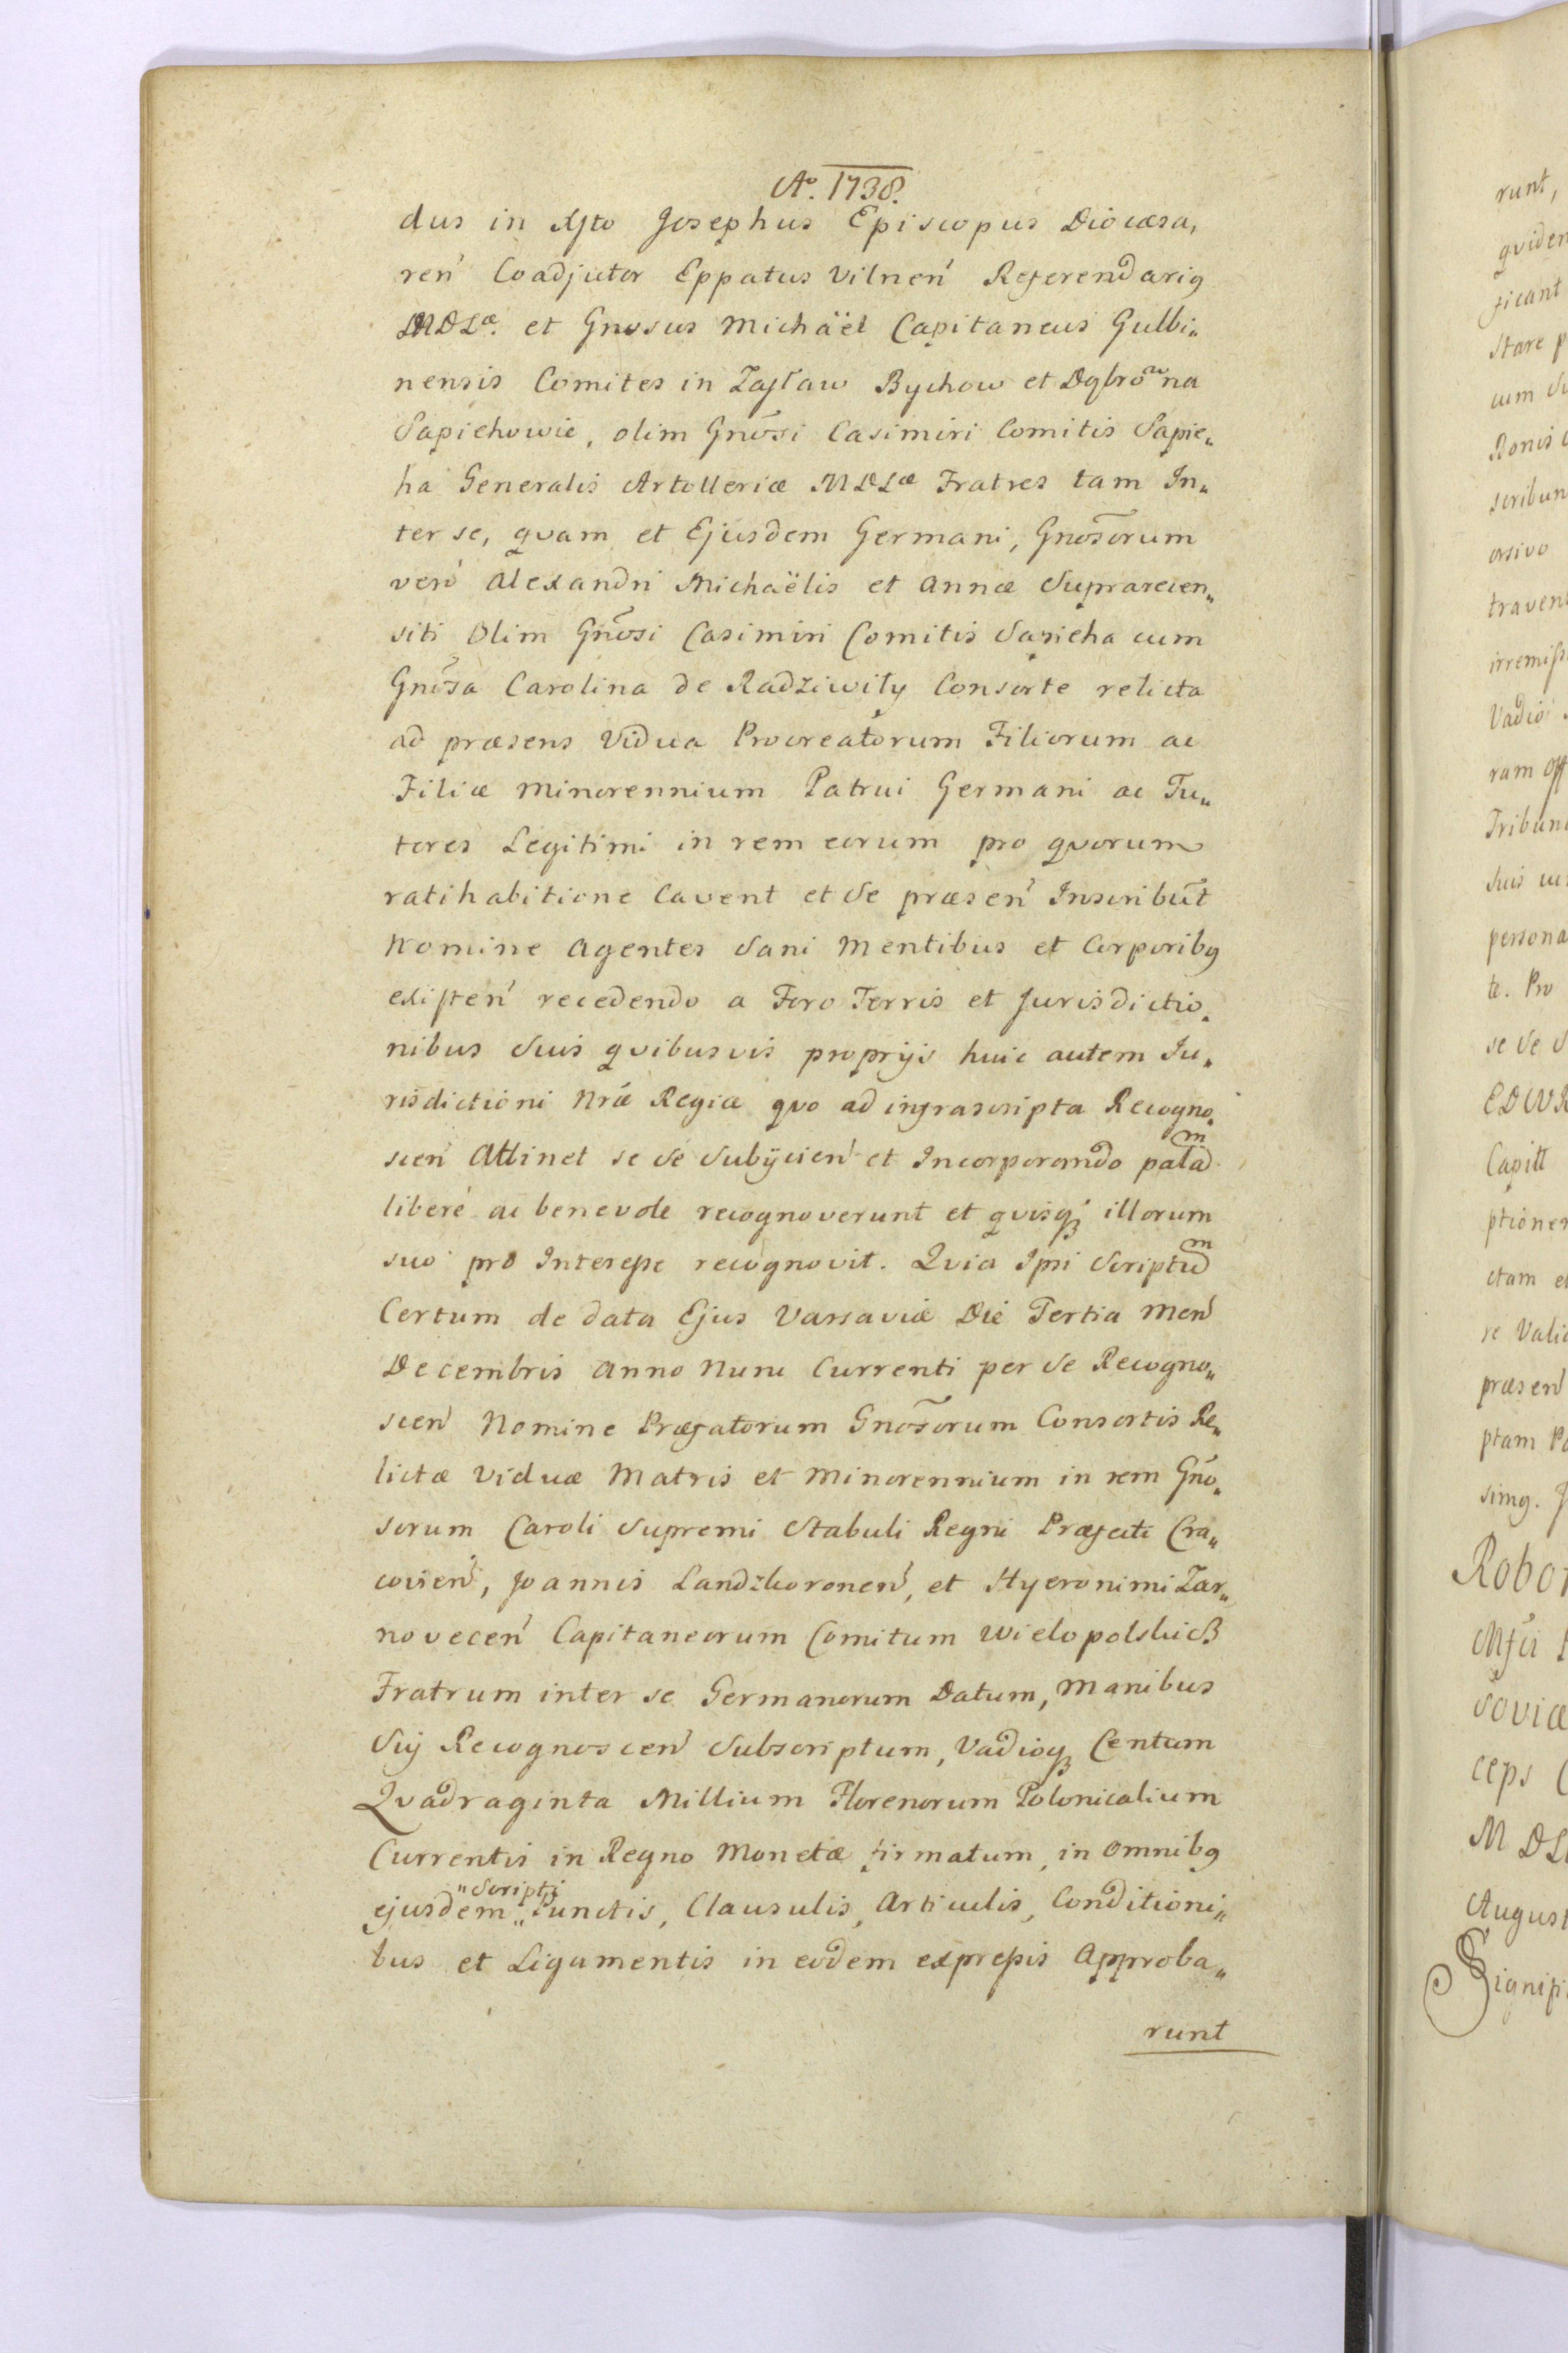 Aº. 1738.
dus in Xsto Josephus Episcopus Diocæsa,
ren̄ Coadjutor Eppatus Vilnen̄ Referendariꝯ
MDLæ. et Gnosus Michäel Capitaneus Gulbi„
nensis Comites in Zasław Bychow et Dąbrowna
Sapiehowie, olim Gnōsi Casimiri Comitis Sapie„
ha Generalis Artolleriæ MDLæ Fratres tam In„
ter se, qvam et Ejusdem Germani, Gnosōrum
verò Alexandri Michaëlis et Annæ Suprarecen„
siti Olim Gnōsi Casimiri Comitis Sapieha cum
Gnōsa Carolina de Radziwiły Consorte relicta
ad præsens Vidua Procreatorum Filiorum ac
Filiæ Minorennium Patrui Germani ac Tu„
tores Legitimi in rem eorum pro qvorum
ratihabitione Cavent et Se præsen̄ Inscribūt
Nomine Agentes Sani Mentibus et Corporibꝯ
existen̄ recedendo a Foro Terris et Jurisdictio„
nibus Suis qvibusvis proprijs huic autem Ju„
risdictioni Nrǽ Regiæ qvo ad infrascripta Recogno„
scen̄ Attinet se Se Subijcien̄ et Incorporando palam
liberè ac benevole recognoverunt et qvisqꝫ illorum
suo pro Interesse recognovit. Qvia Ipsi Scriptum
Certum de data Ejus Varsaviæ Die Tertia Men̄
Decembris Anno Nunc Currenti per Se Recogno„
scen̄ Nomine Præfatorum Gnosōrum Consortis Re„
lictæ Viduæ Matris et Minorennium in rem Gnō„
sorum Caroli Supremi Stabuli Regni Præfecti Cra„
covien̄, Joannis Landzkoronen̄, et Hyeronimi Zar„
novecen̄ Capitaneorum Comitum Wielopolskich
Fratrum inter se Germanorum Datum, Manibus
Sūj Recognoscen̄ Subscriptum, Vadioqꝫ Centum
Qvadraginta Millium Florenorum Polonicalium
Currentis in Regno Monetæ firmatum, in Omnibꝯ
ejusdem „Scripti„ Punctis, Clausulis, Articulis, Conditioni„
bus et Ligamentis in eodem expressis Approba„
runt
runt,
ficant
stare p
Ronis
scribun
orsivo
Tribuna
persona
te. Pro
se Se S
Capitt
ptionem
ctam et
præsen̄
ptam
Robor
soviæ
ceps
MDL
August
Signifi